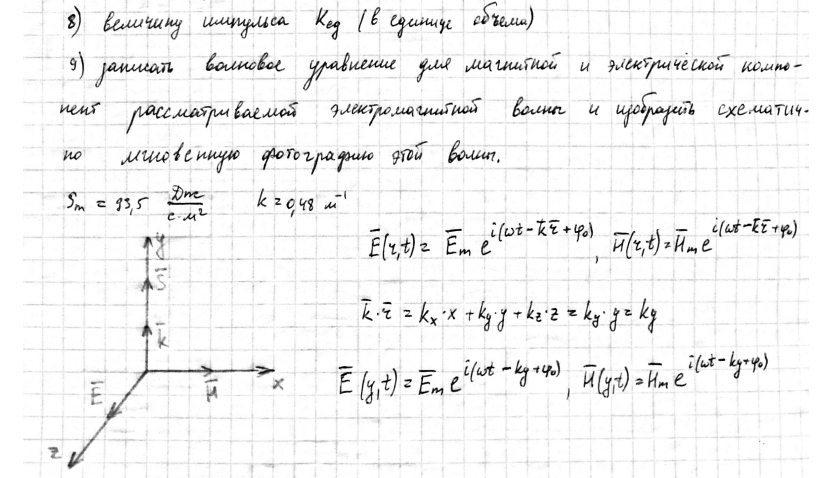 8) величину импульса Kед (в единице объема)
9) записать волновое уравнение для магнитной и электрической компо-
нент рассматриваемой электромагнитной волны и изобразить схематич-
но мгновенную фотографию этой волны.
Sm = 93,5 Дж/(с·м²) k = 0,48 м⁻¹
y
S̄
k̄
Ē
H̄
x
z
Ē(r,t) = Ēm e^{i(ωt - k̄r̄ + φ₀)}, H̄(r,t) = H̄m e^{i(ωt - k̄r̄ + φ₀)}
k̄·r̄ = kx·x + ky·y + kz·z = ky·y = ky
Ē(y,t) = Ēm e^{i(ωt - ky + φ₀)}, H̄(y,t) = H̄m e^{i(ωt - ky + φ₀)}